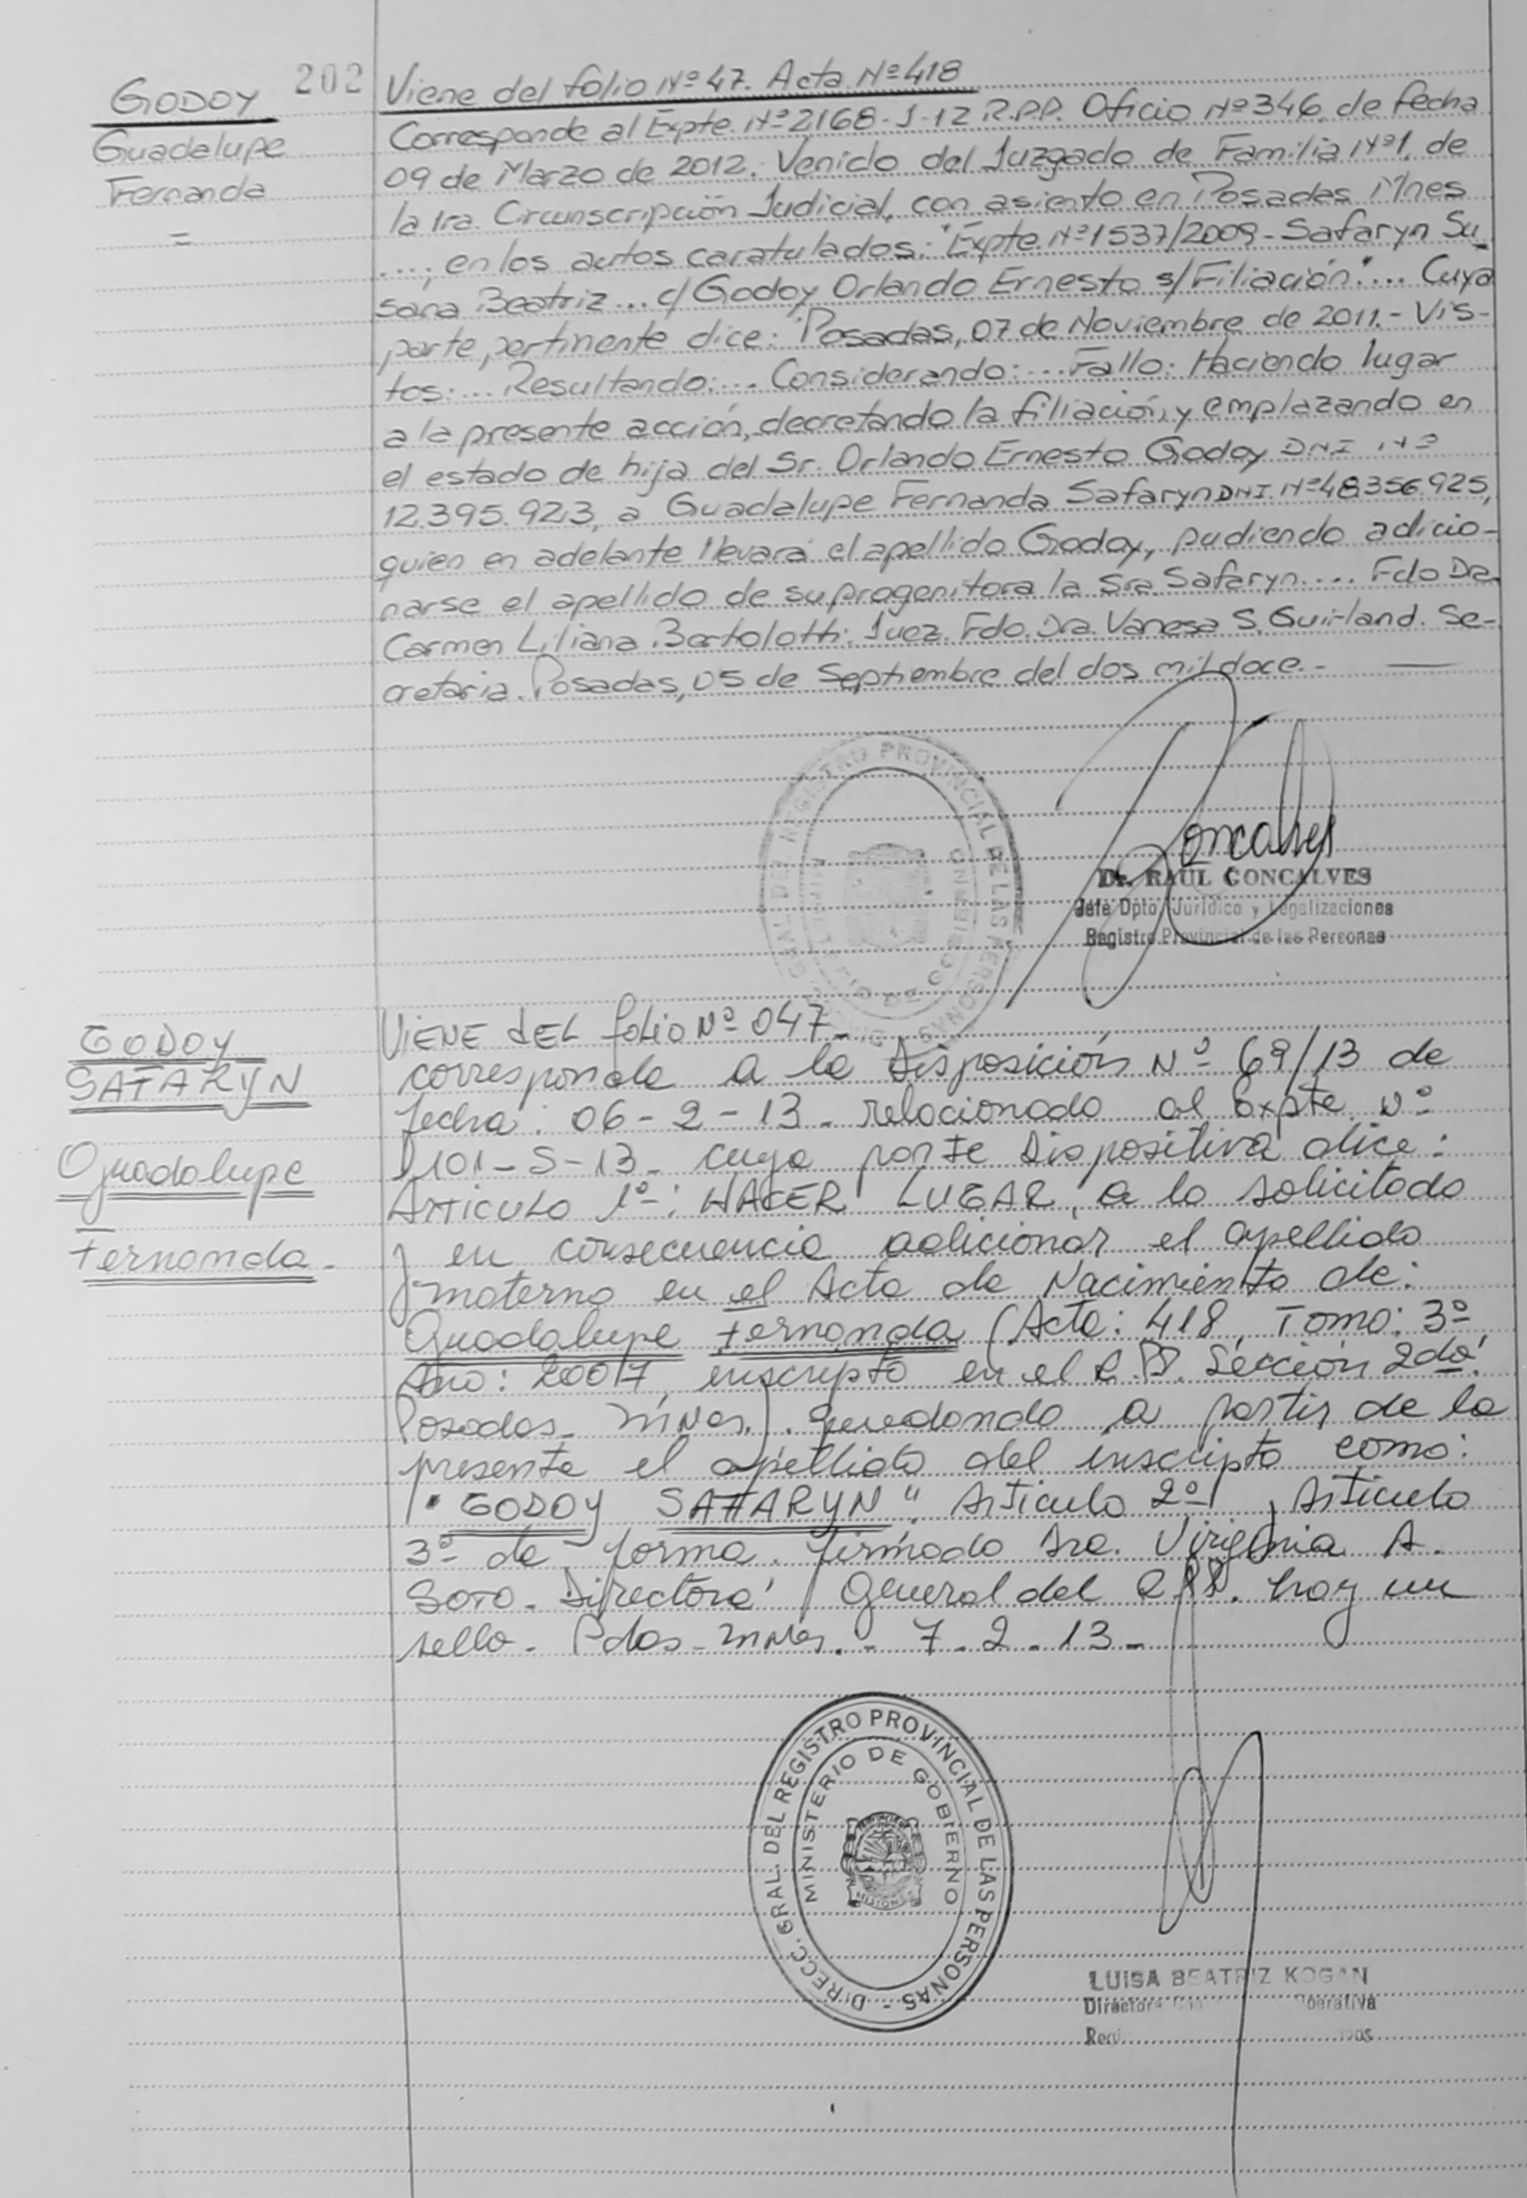 202
GODOY
Guadalupe
Fernanda
=
Viene del folio Nº 47. Acta Nº 418
Corresponde al Expte. Nº 2168-J-12 R.P.P. Oficio Nº 346, de fecha
09 de Marzo de 2012. Venido del Juzgado de Familia Nº 1, de
la 1ra. Circunscripción Judicial, con asiento en Posadas Mnes
...; en los autos caratulados: "Expte. Nº 1537/2009 - Safaryn Su-
sana Beatriz... c/ Godoy Orlando Ernesto s/ Filiación"... Cuya
parte pertinente dice: "Posadas, 07 de Noviembre de 2011.- Vis-
tos:... Resultando:... Considerando:... Fallo: Haciendo lugar
a la presente acción, decretando la filiación y emplazando en
el estado de hija del Sr. Orlando Ernesto Godoy DNI Nº
12.395.923, a Guadalupe Fernanda Safaryn DNI. Nº 48.356.925,
quien en adelante llevará el apellido Godoy, pudiendo adicio-
narse el apellido de su progenitora la Sra. Safaryn.... Fdo Dra.
Carmen Liliana Bertolotti. Juez. Fdo. Dra. Vanesa S. Guirland. Se-
cretaria. Posadas, 05 de Septiembre del dos mil doce.-
DIRECC. GRAL. DEL REGISTRO PROVINCIAL DE LAS PERSONAS
MINISTERIO DE GOBIERNO
Goncalves
Dr. RAUL GONCALVES
Jefe Dpto. Jurídico y Legalizaciones
Registro Provincial de las Personas
GODOY
SAFARYN
Guadalupe
Fernanda.
VIENE DEL folio Nº 047-
corresponde a la Disposición Nº 69/13 de
fecha: 06-2-13. relacionado al Expte. Nº
1101-S-13- cuya parte Dispositiva dice:
Articulo 1º: HACER LUGAR, a lo solicitado
y en consecuencia adicionar el apellido
materno en el Acta de Nacimiento de:
Guadalupe Fernanda (Acta: 418, Tomo: 3º
Año: 2007, inscripto en el R.P.P. Sección 2da.
Posadas- Mnes.). quedando a partir de la
presente el apellido del inscripto como:
"GODOY SAFARYN". Articulo 2º, Articulo
3º de forma. firmado Sra. Virginia A.
Soto- Directora General del R.P.P. hay un
sello- Pdas- Mnes.- 7-2-13-
DIRECC. GRAL. DEL REGISTRO PROVINCIAL DE LAS PERSONAS -
MINISTERIO DE GOBIERNO
MISIONES
LUISA BEATRIZ KOGAN
Directora